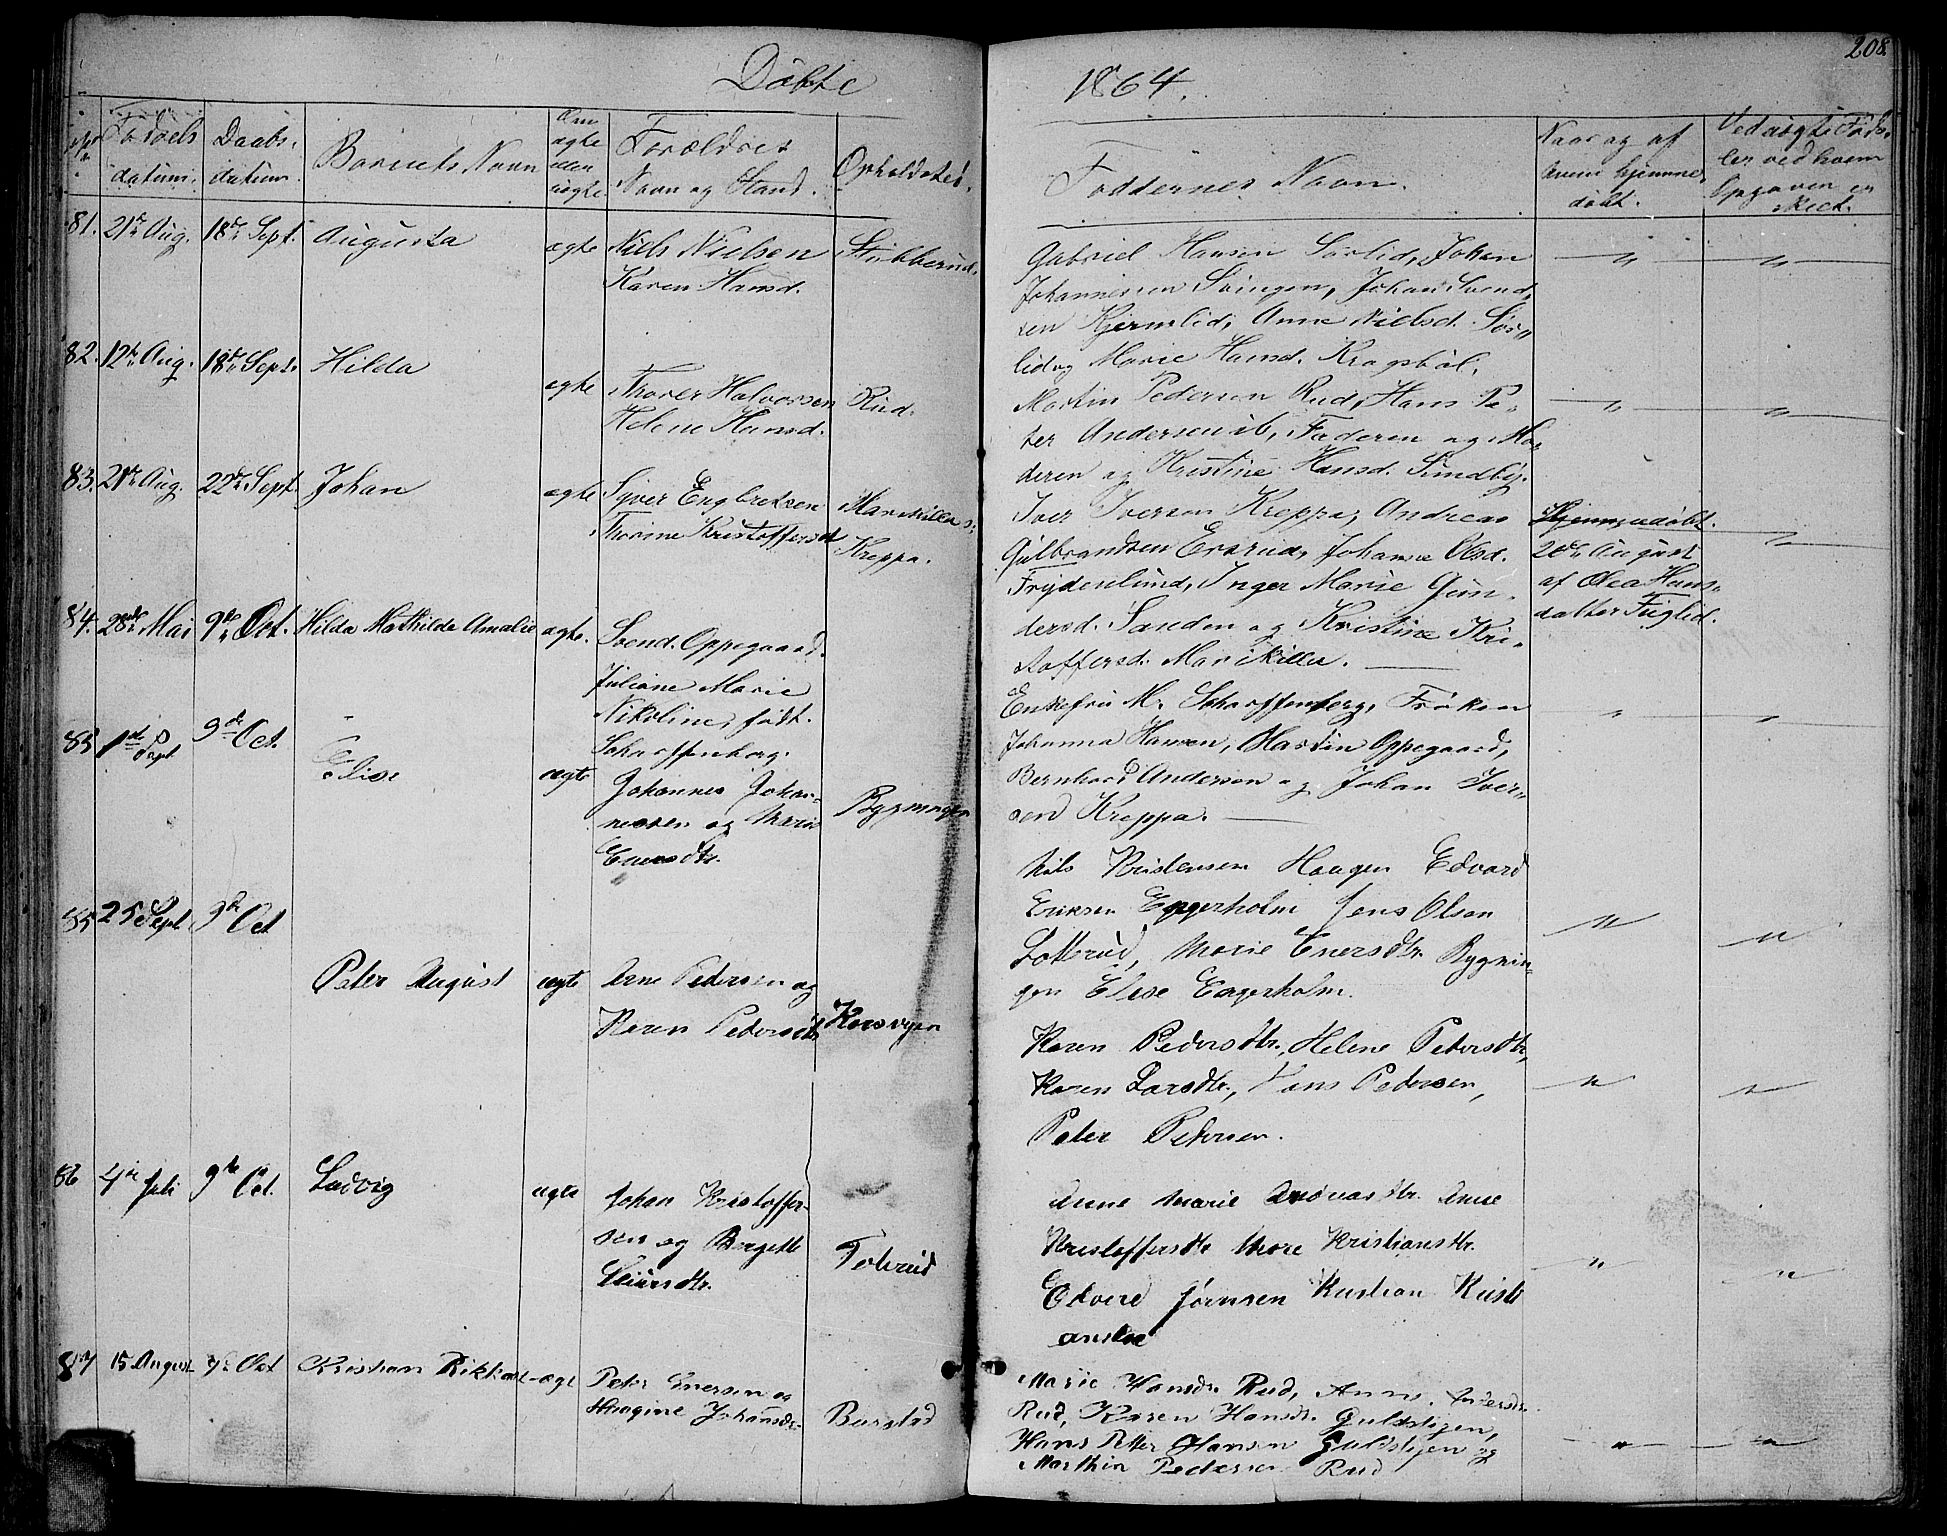 208
Döbte 1864.
No.
Fødsels datum.
Daabs datum.
Barnets Navn
Om ægte eller uægte
Forældres Navn og Stand.
Opholdsted.
Faddernes Navn.
Naar og af hvem hjemmedøbt.
Ved uægte Føds-
ler ved hvem
Opgaven er
skeet.
81. 21de Aug. 18de Sept. Augusta ægte Niels Nielsen Stubberud.
Karen Hansd.
Gabriel Hansen Sørlid, Johan
Johannessen Svingen, Johan Svend-
sen Kjernlid, Anne Nielsd. Sør-
lid og Marie Hansd. Kragsbøl.
82. 12te Aug. 18de Sept. Hilda
ægte Thorer Halvorsen Rud.
Helene Hansd.
Martin Pedersen Rud, Hans Pe-
ter Andersen ib, Faderen og Mo-
deren og Kristine Hansd. Sundby.
83. 21de Aug. 22de Sept. Johan ægte Syver Engbretsen Marikillen,
Thorine Kristoffersd Kreppa.
Iver Iversen Kreppa, Andreas
Gulbrandsen Ersrud, Johanne Olsd.
Frydenlund, Inger Marie Gun-
dersd. Sanden og Kristine Kri-
stoffersd. Marikilla.
Hjemmedøbt
20de August
af Olea Hans-
datter Fuglid.
84. 28de Mai 9de Oct. Hilda Mathilde Amalie ægte. Svend Oppegaard.
Juliane Marie
Nikoline, født
Scharffenberg.
Enkefru M. Scharffenberg, Frøken
Johanna Hansen, Martin Oppegaard,
Bernhard Anderson og Johan Iver-
sen Kreppa.
85 1ste Sept 9de Oct. Elise ægte Johannes Johan-
nesen og Marie
Enersdtr.
Bygningen
Nils Kristensen Haugen Edvard
Eriksen Engerholm Jens Olsen
Lotterud, Marie Enersdtr. Bygnin-
gen Elise Engerholm.
85 25 Sept 9de Oct
Peter August ægte Arne Pedersen og
Karen Pedersdtr Korsvegen
Karen Pedersdtr., Helene Petersdtr,
Karen Larsdtr., Hans Pedersen,
Peter Petersen.
86 4de Juli 9de Oct. Ludvig ægte Johan Kristoffer-
sen og Bergette
Tobrud
Anne Marie Andreasdtr. Anne
Kristoffersdtr Mare Kristiansdtr.
Edvard Jørnsen Kristian Kristi
ansen
87 15 August 9de Oct Kristian Rikhart ægt Peter Enersen og
Haagine Johansdr. Burstad
Marie Hansdr. Rud, Anne Andersdr.
Rud, Karen Hansdr. Guldstigen,
Hans Petter Hansen Guldstigen og
Marthin Pedersen Rud